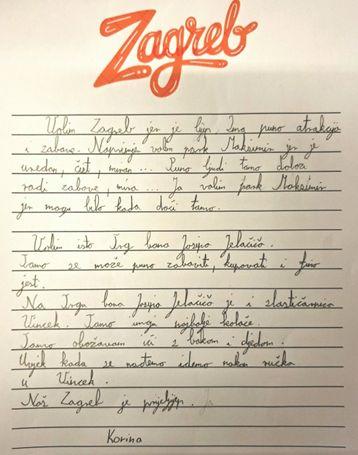 Zagreb
Volim Zagreb jer je lijep. Ima puno atrakcija
i zabave. Najviše volim park Maksimir jer je
uredan, čist, miran... Puno ljudi tamo dolazi
radi zabave, mira... Ja volim park Maksimir
jer mogu bilo kada doći tamo.
Volim isto Trg bana Josipa Jelačića.
Tamo se može puno zabaviti, kupovati i fino
jest.
Na Trgu bana Josipa Jelačića je i slastičarnica
Vincek. Tamo imaju najbolje kolače.
Tamo obožavam ići s bakom i djedom.
Uvijek kada se nađemo idemo nakon ručka
u Vincek.
Naš Zagreb je prelijep.
Korina